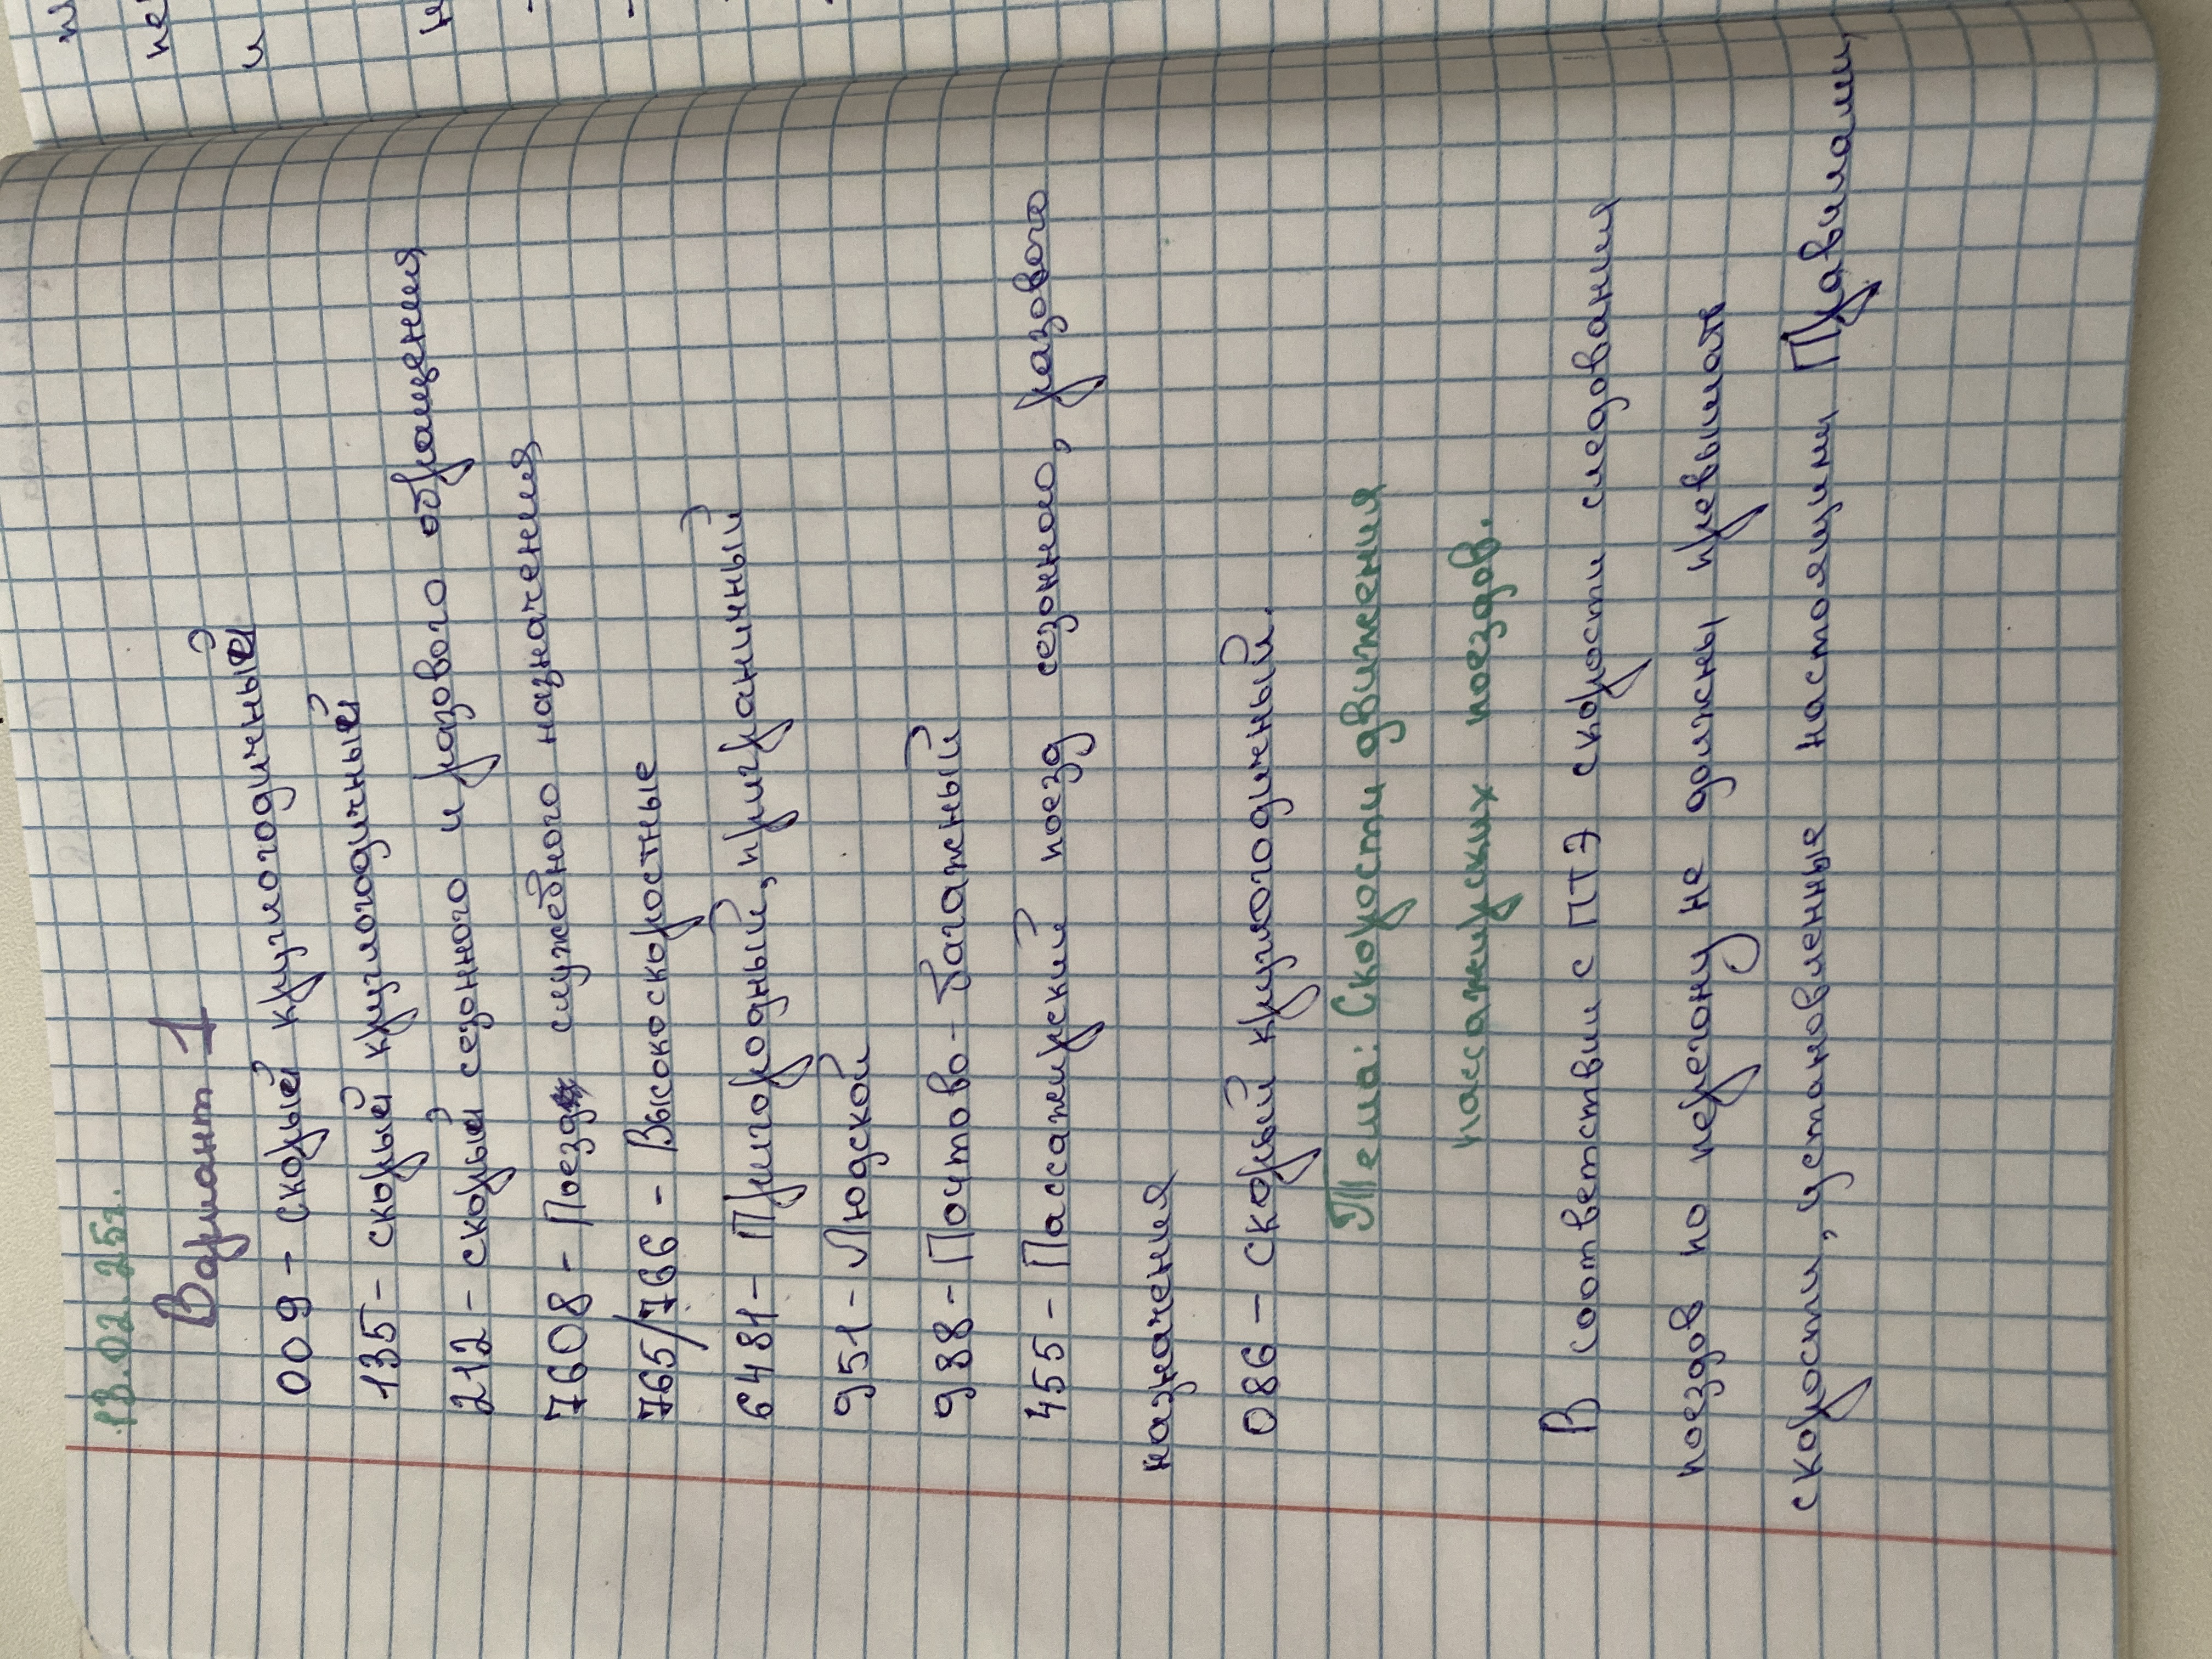 13.02.25г.
Вариант 1
009 - скорый круглогодичный
135 - скорый круглогодичный
212 - скорый сезонного и разового обращения
7608 - Поезд служебного назначения
765/766 - Высокоскоростные
6481 - Пригородный, приграничный
951 - Людской
988 - Почтово - багажный
455 - Пассажирский поезд сезонного, разового
назначения
086 - скорый круглогодичный.
Тема: Скорости движения
пассажирских поездов.
В соответствии с ПТЭ скорости следования
поездов по перегону не должны превышать
скорости, установленные настоящими Правилами,